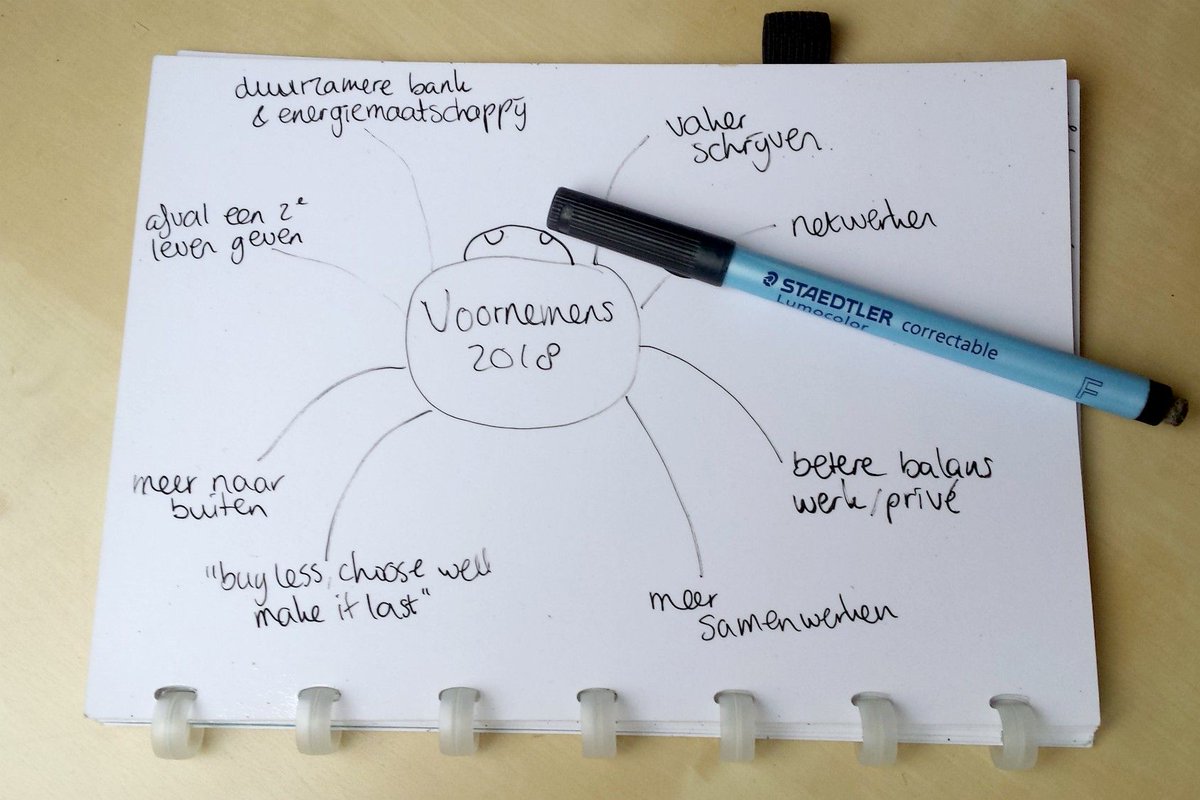 duurzamere bank
& energiemaatschappij
vaker
schrijven.
afval een 2e
leven geven
netwerken
Voornemens
2018
STAEDTLER correctable
Lumocolor
F
meer naar
buiten
betere balans
werk/privé
"buy less, choose well
make it last"
meer
samenwerken